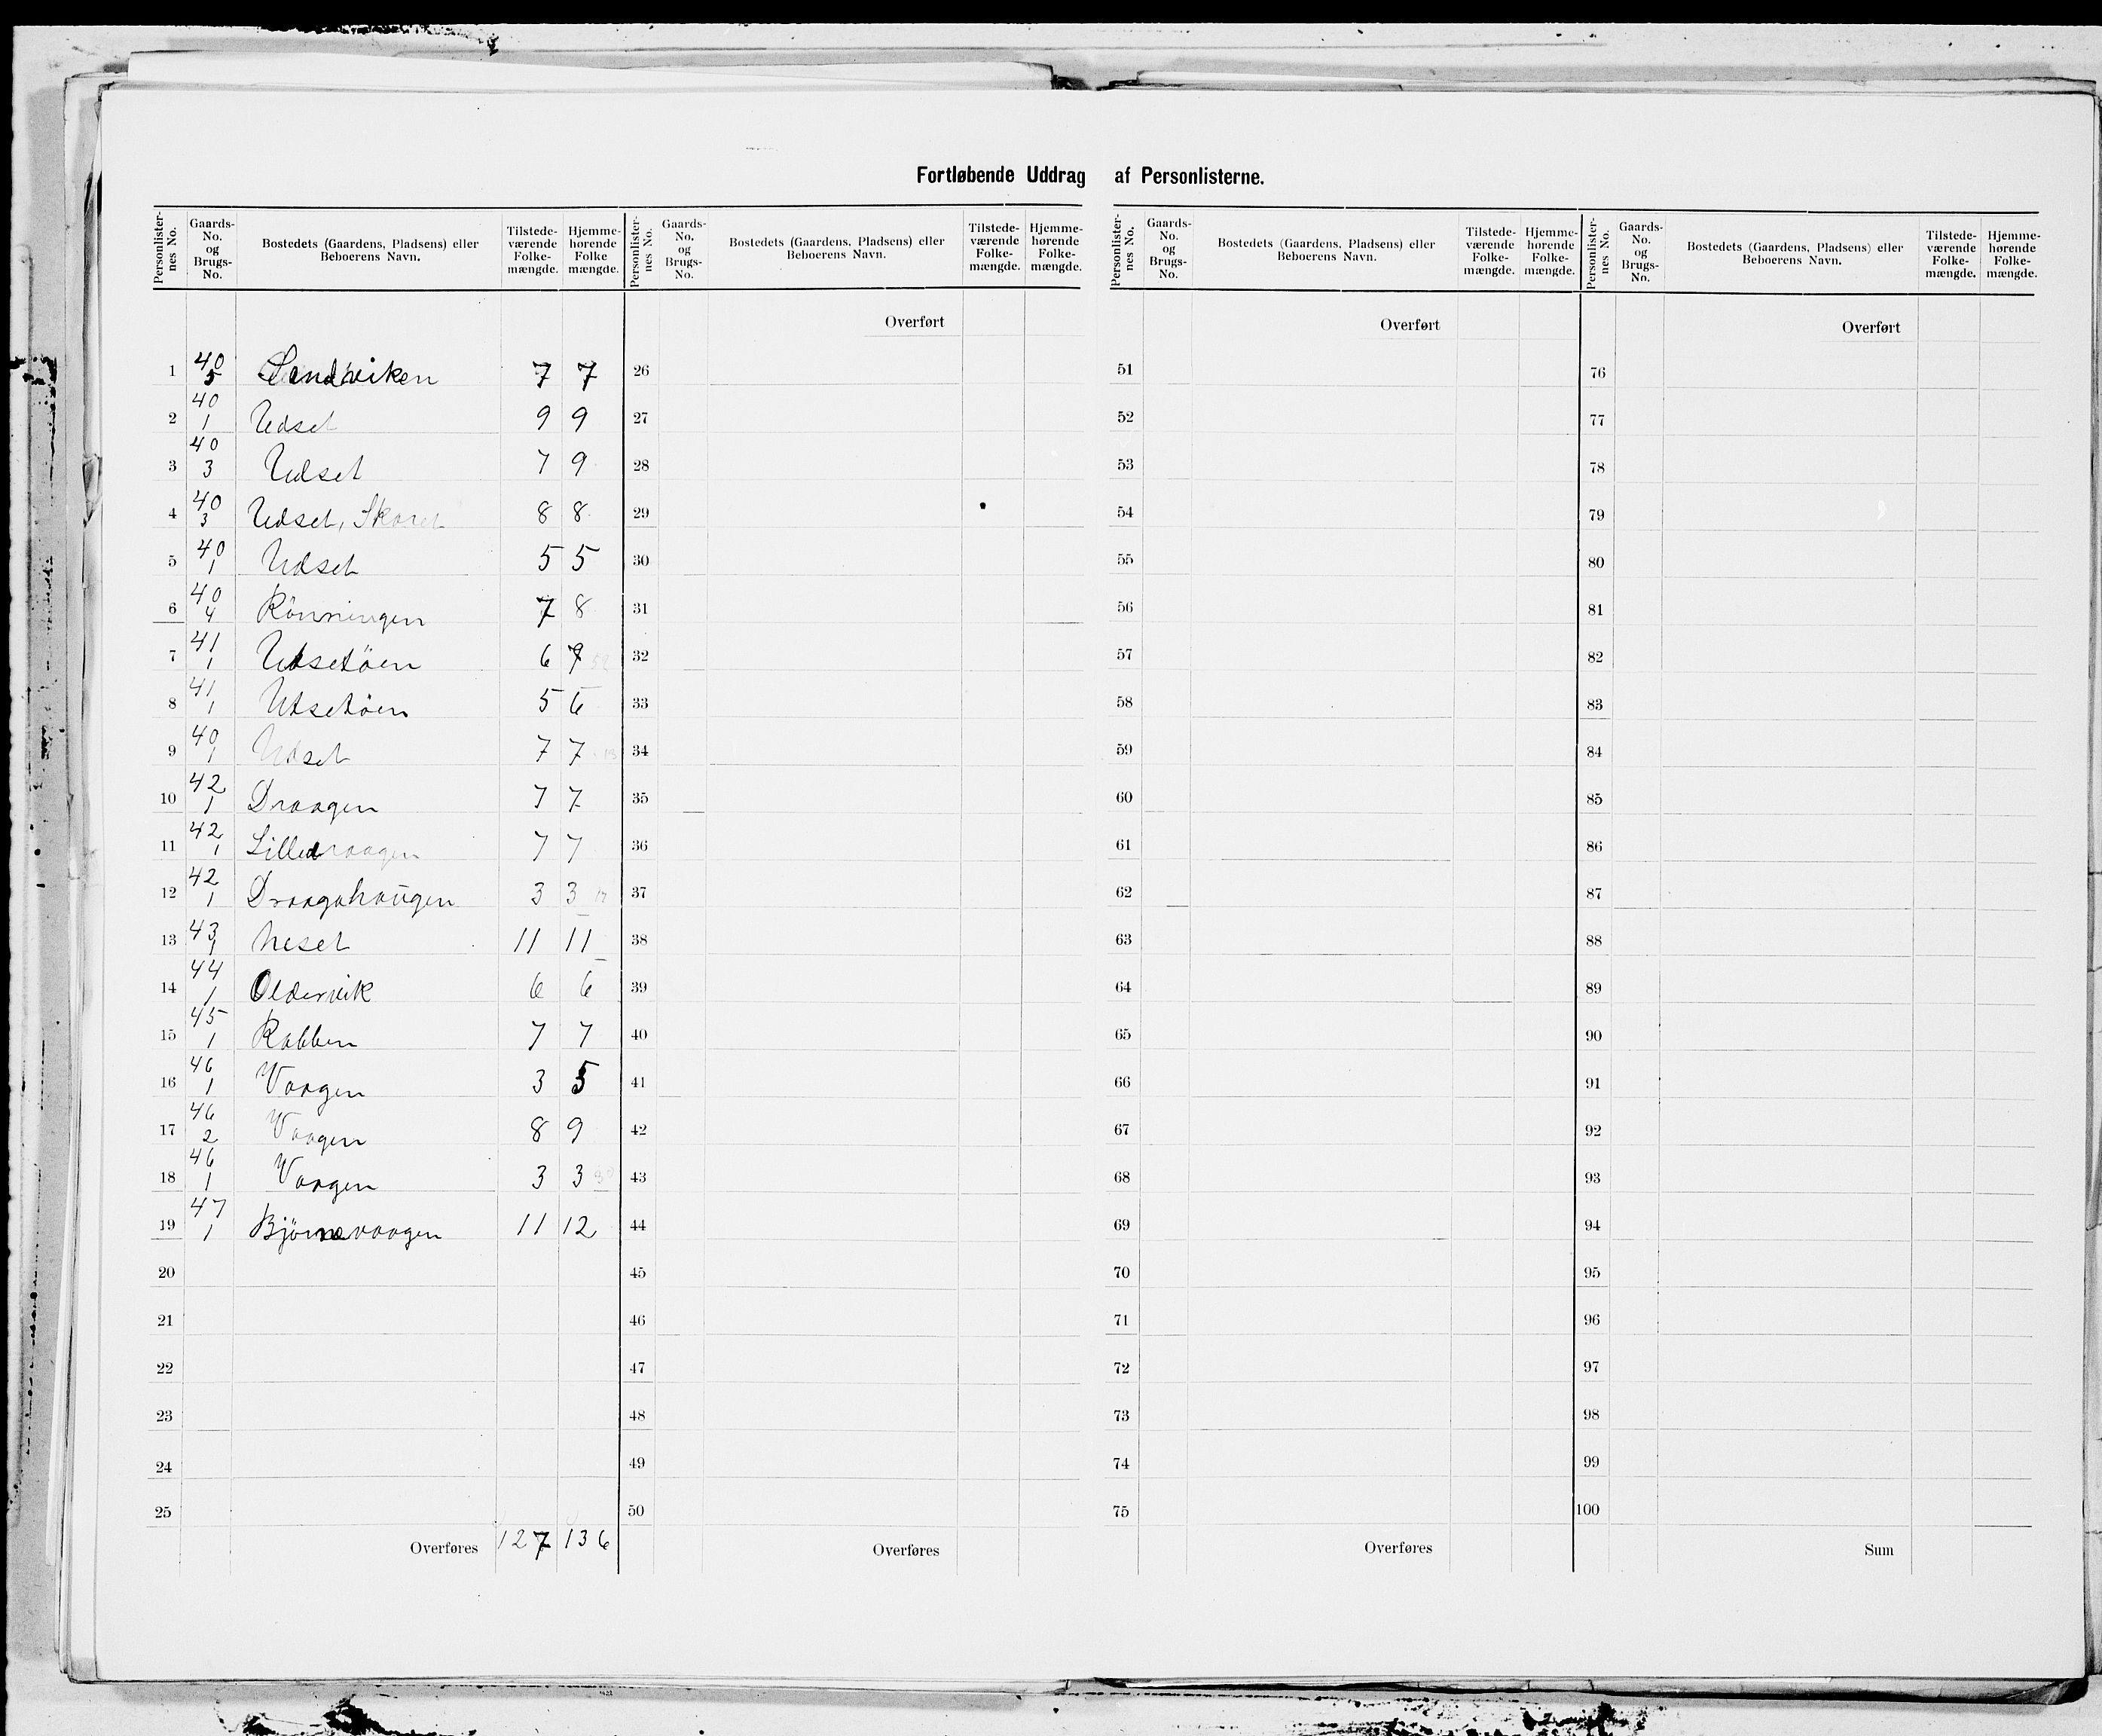 Fortløbende Uddrag af Personlisterne.
Personlisternes No. | Gaards-No. og Brugs-No. | Bostedets (Gaardens, Pladsens) eller Beboerens Navn. | Tilstedeværende Folkemængde. | Hjemmehørende Folke mængde.
Personlisternes No. | Gaards-No. og Brugs-No. | Bostedets (Gaardens, Pladsens) eller Beboerens Navn. | Tilstedeværende Folkemængde. | Hjemmehørende Folkemængde.
Personlisternes No. | Gaards-No. og Brugs-No. | Bostedets (Gaardens, Pladsens) eller Beboerens Navn. | Tilstedeværende Folkemængde. | Hjemmehørende Folkemængde.
Personlisternes No. | Gaards-No. og Brugs-No. | Bostedets (Gaardens, Pladsens) eller Beboerens Navn. | Tilstedeværende Folkemængde. | Hjemmehørende Folkemængde.
Overført Overført Overført
1 40 5 Sandviken 7 7 26 51 76
2 40 1 Udset 9 9 27 52 77
3 40 3 Udset 7 9 28 53 78
4 40 3 Udset, Skaret 8 8 29 54 79
5 40 1 Udset 5 5 30 55 80
6 40 4 Rönningen 7 8 31 56 81
7 41 1 Udsetöen 6 7 32 57 82
8 41 1 Utsetöen 5 6 33 58 83
9 40 1 Udset 7 7 13 34 59 84
10 42 1 Draagen 7 7 35 60 85
11 42 1 Lilledraagen 7 7 36 61 86
12 42 1 Draagahaugen 3 3 17 37 62 87
13 43 1 Neset 11 11 38 63 88
14 44 1 Oldervik 6 6 39 64 89
15 45 1 Rabben 7 7 40 65 90
16 46 1 Vaagen 3 5 41 66 91
17 46 2 Vaagen 8 9 42 67 92
18 46 1 Vaagen 3 3 30 43 68 93
19 47 1 Björnevaagen 11 12 44 69 94
20 45 70 95
21 46 71 96
22 47 72 97
23 48 73 98
24 49 74 99
25 50 75 100
Overføres 127 136 Overføres Overføres Sum